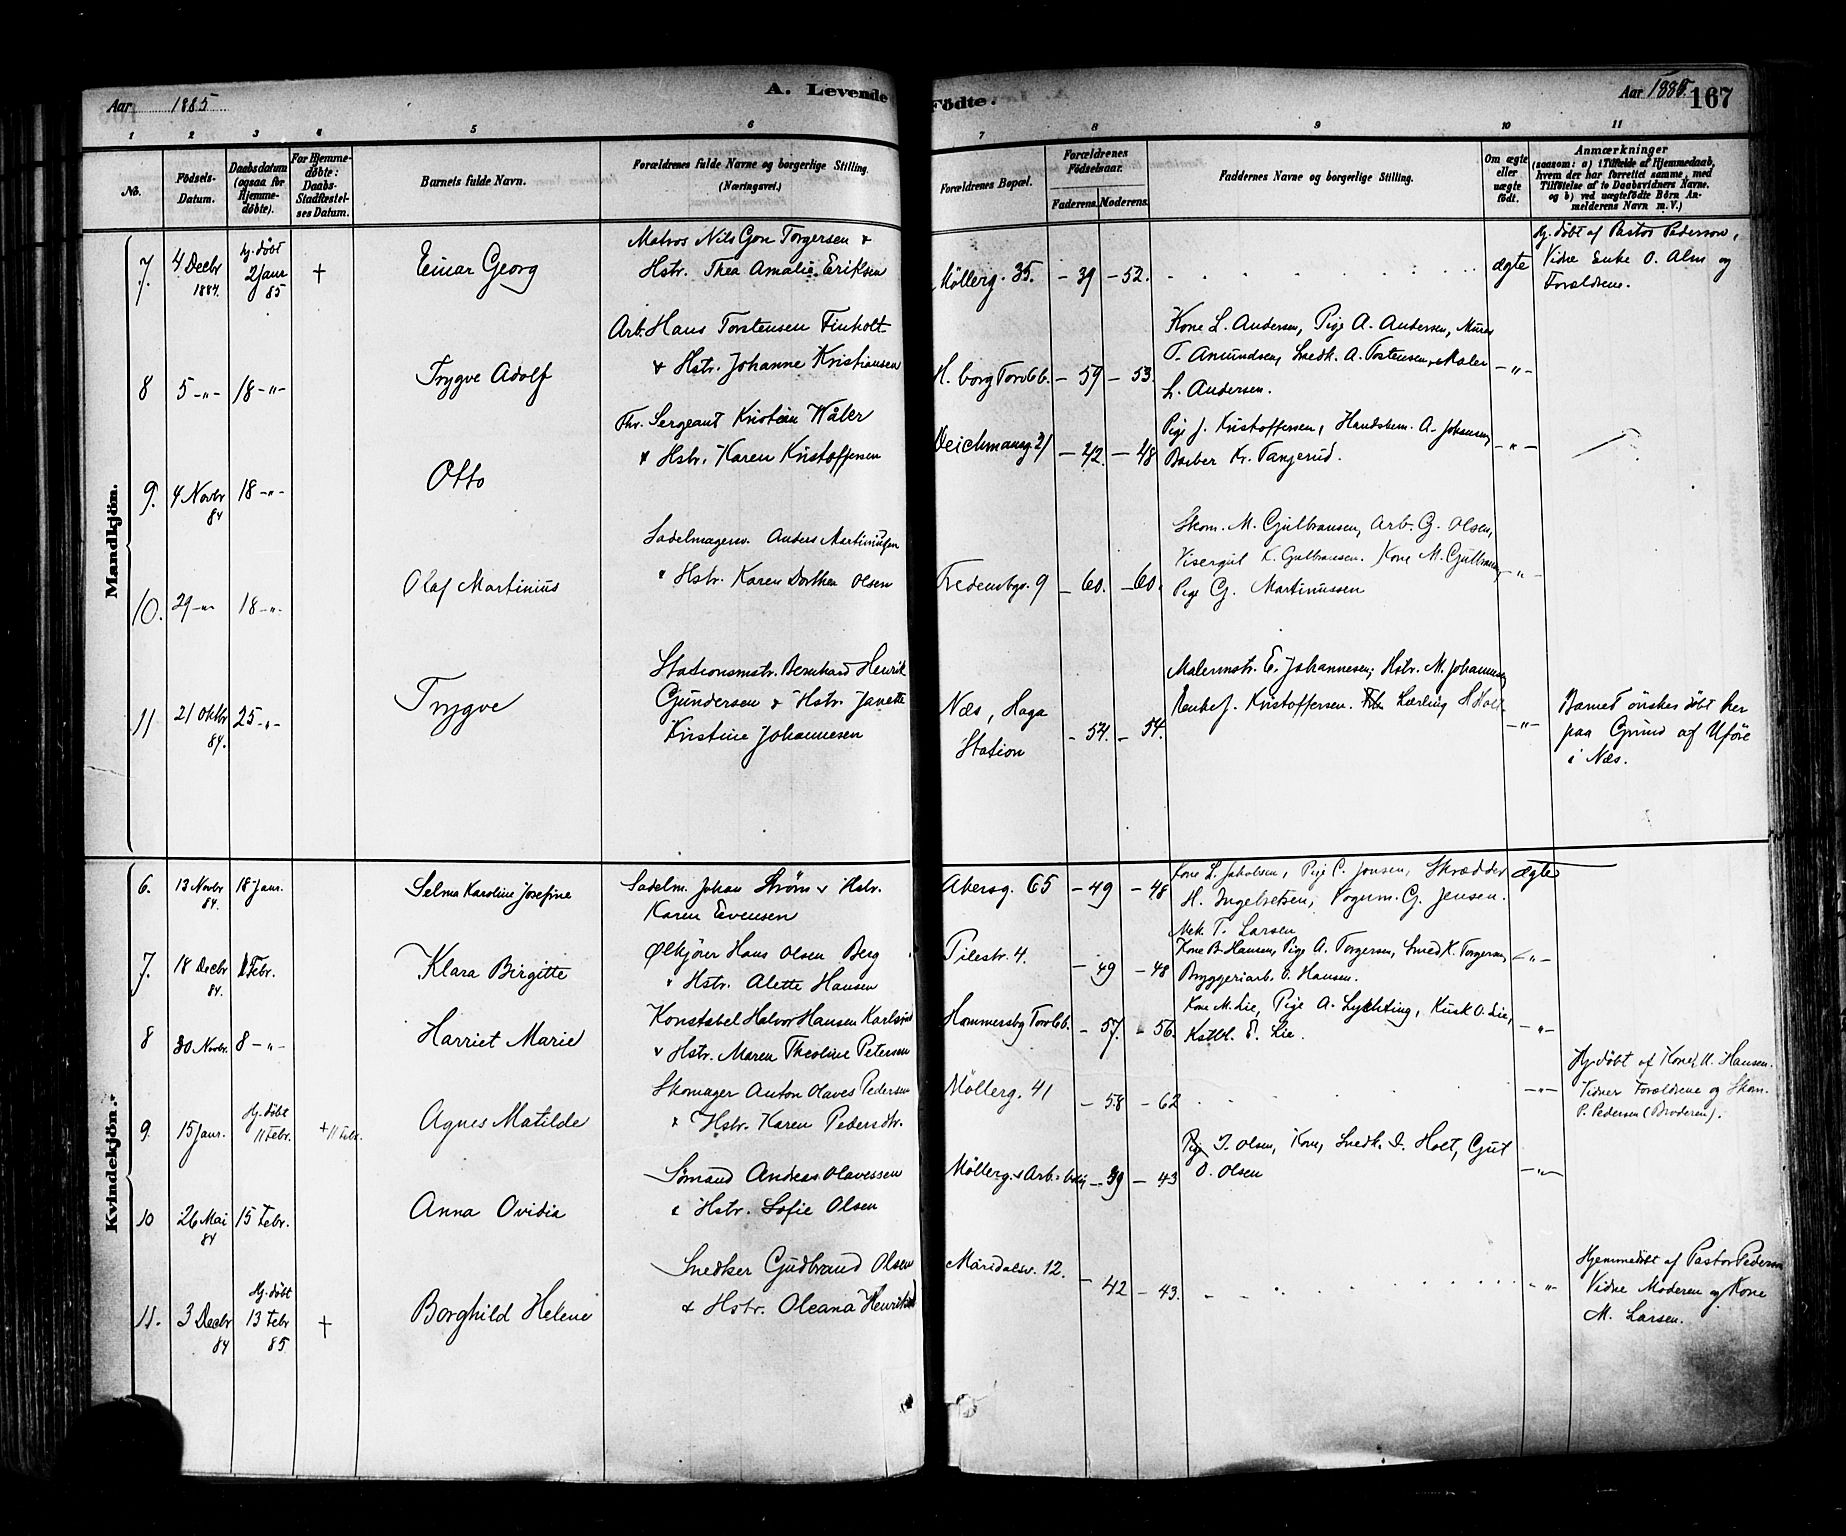 Aar 1885
A. Levende Födte.
Aar 1885. 167
1 2 3 4 5 6 7 8 9 10 11
No.
Födsels-Datum.
Daabsdatum (ogsaa for Hjemme-döbte).
For Hjemme-döbte: Daabs-Stadfæstel-ses Datum.
Barnets fulde Navn.
Forældrenes fulde Navne og borgerlige Stilling. (Næringsvei.)
Forældrenes Bopæl.
Forældrenes Födselsaar.
Faderens. Moderens.
Faddernes Navne og borgerlige Stilling.
Om ægte eller uægte födt.
Anmærkninger
(saasom: a) i Tilfælde af Hjemmedaab,
hvem der har forrettet samme, med
Tilföielse af to Daabsvidners Navne.
og b) ved uægtefödte Börn An-
melderens Navn m. V.)
Mandkjön.
7. 4 Decbr 1884. hj. döbt 2 Janr 85 † Einar Georg
Matros Nils Gon Torgersen &
Hstr. Thea Amalie Eriksen
Møllerg. 35. – 39 – 52. ægte
Hj. döbt af Pastor Pedersen,
Vidne Enke O. Alm og
Forældrene.
8 5 –"– 18 –"– Trygve Adolf
Arb. Hans Torstensen Finholt
& Hstr. Johanne Kristiansen
H.borg Torv 6b. – 59 – 53.
Kone L. Andersen, Pige A. Andersen, Murer
T. Amundsen, Snedk. A. Tostensen, Maler
L. Andersen. –"–
9. 4 Novbr 84 18 –"– Otto
Fhv. Sergeant Kristian Wåler
& Hstr. Karen Kristoffersen
Deichmansg 21 – 42. – 48
Pige J. Kristoffersen, Handsbem. A. Johansen,
Barber Kr. Tangerud. –"–
10. 29 –"– 18 –"– Olaf Martinius
Sadelmagersv. Anders Martinusen
& Hstr. Karen Dorthea Olsen
Fredensbgv. 9 – 60. – 60.
Skom. M. Gulbransen, Arb. G. Olsen,
Visergut K. Gulbransen. Kone M. Gulbransen
Pige G. Martinussen –"–
11 21 Oktbr 84. 25 –"– Trygve
Stationsmstr. Bernhard Henrik
Gundersen & Hstr. Janette
Kristine Johannesen
Næs, Haga
Station – 54. – 54.
Malermstr. E. Johannesen, Hstr. M. Johannesen
Kristoffersen. Lærling H Holt –"–
Barnet önskes döbt her
paa Grund af Uföre
i Næs.
Kvindekjön.
6. 13 Novbr 84. 18 Janr. Selma Karoline Josefine
Sadelm. Johan Strøm & Hstr.
Karen Evensen
Akersg. 65 – 49 – 48
Kone L. Jakobsen, Pige C. Jensen, Skrædder
H. Ingebretsen, Vognm. G. Jensen. ægte
7. 18 Decbr 84. 1 Febr. Klara Birgitte
Ølkjører Hans Olsen Berg
& Hstr. Alette Hansen
Pilestr. 4. – 49 – 48
Mek. T. Larsen
Kone B. Hansen, Pige A. Torgersen, Smed K. Torgersen,
Bryggeriarb. O. Hansen. –"–
8 30 Novbr. 8 –"– Harriet Marie
Konstabel Halvor Hansen Karlsrud
& Hstr. Maren Theoline Petersen
Hammersbg Torv 6b. – 57. – 56.
Kone M. Lie, Pige A. Lychting, Kusk O. Lie,
Kstbl. E. Lie. –"–
9. 15 Janr. Hj. döbt 11 Febr. † 11 Febr. Agnes Matilde
Skomager Anton Olaves Pedersen
& Hstr. Karen Pedersdtr.
Møllerg. 41 – 58 – 62 –"–
Hj. döbt af Kone M. Hansen.
Vidner Forældrene og Skom.
P. Pedersen (Broderen).
10 26 Mai 84 15 Febr. Anna Ovidia
Sømand Andreas Olavessen
& Hstr. Sofie Olsen
Møllerg.s Arb. – 39 – 43
Pige J. Olsen, Kone, Snedk. D. Holt, Gut
O. Olsen –"–
11. 3 Decbr 84 Hj. döbt 13 Febr 85 † Borghild Helene
Snedker Gudbrand Olsen
& Hstr. Oleana Henriksd
Maridalsv. 12. – 42 – 43. –"–
Hjemmedöbt af Pastor Pedersen
Vidne Moderen og Kone
M. Larsen.